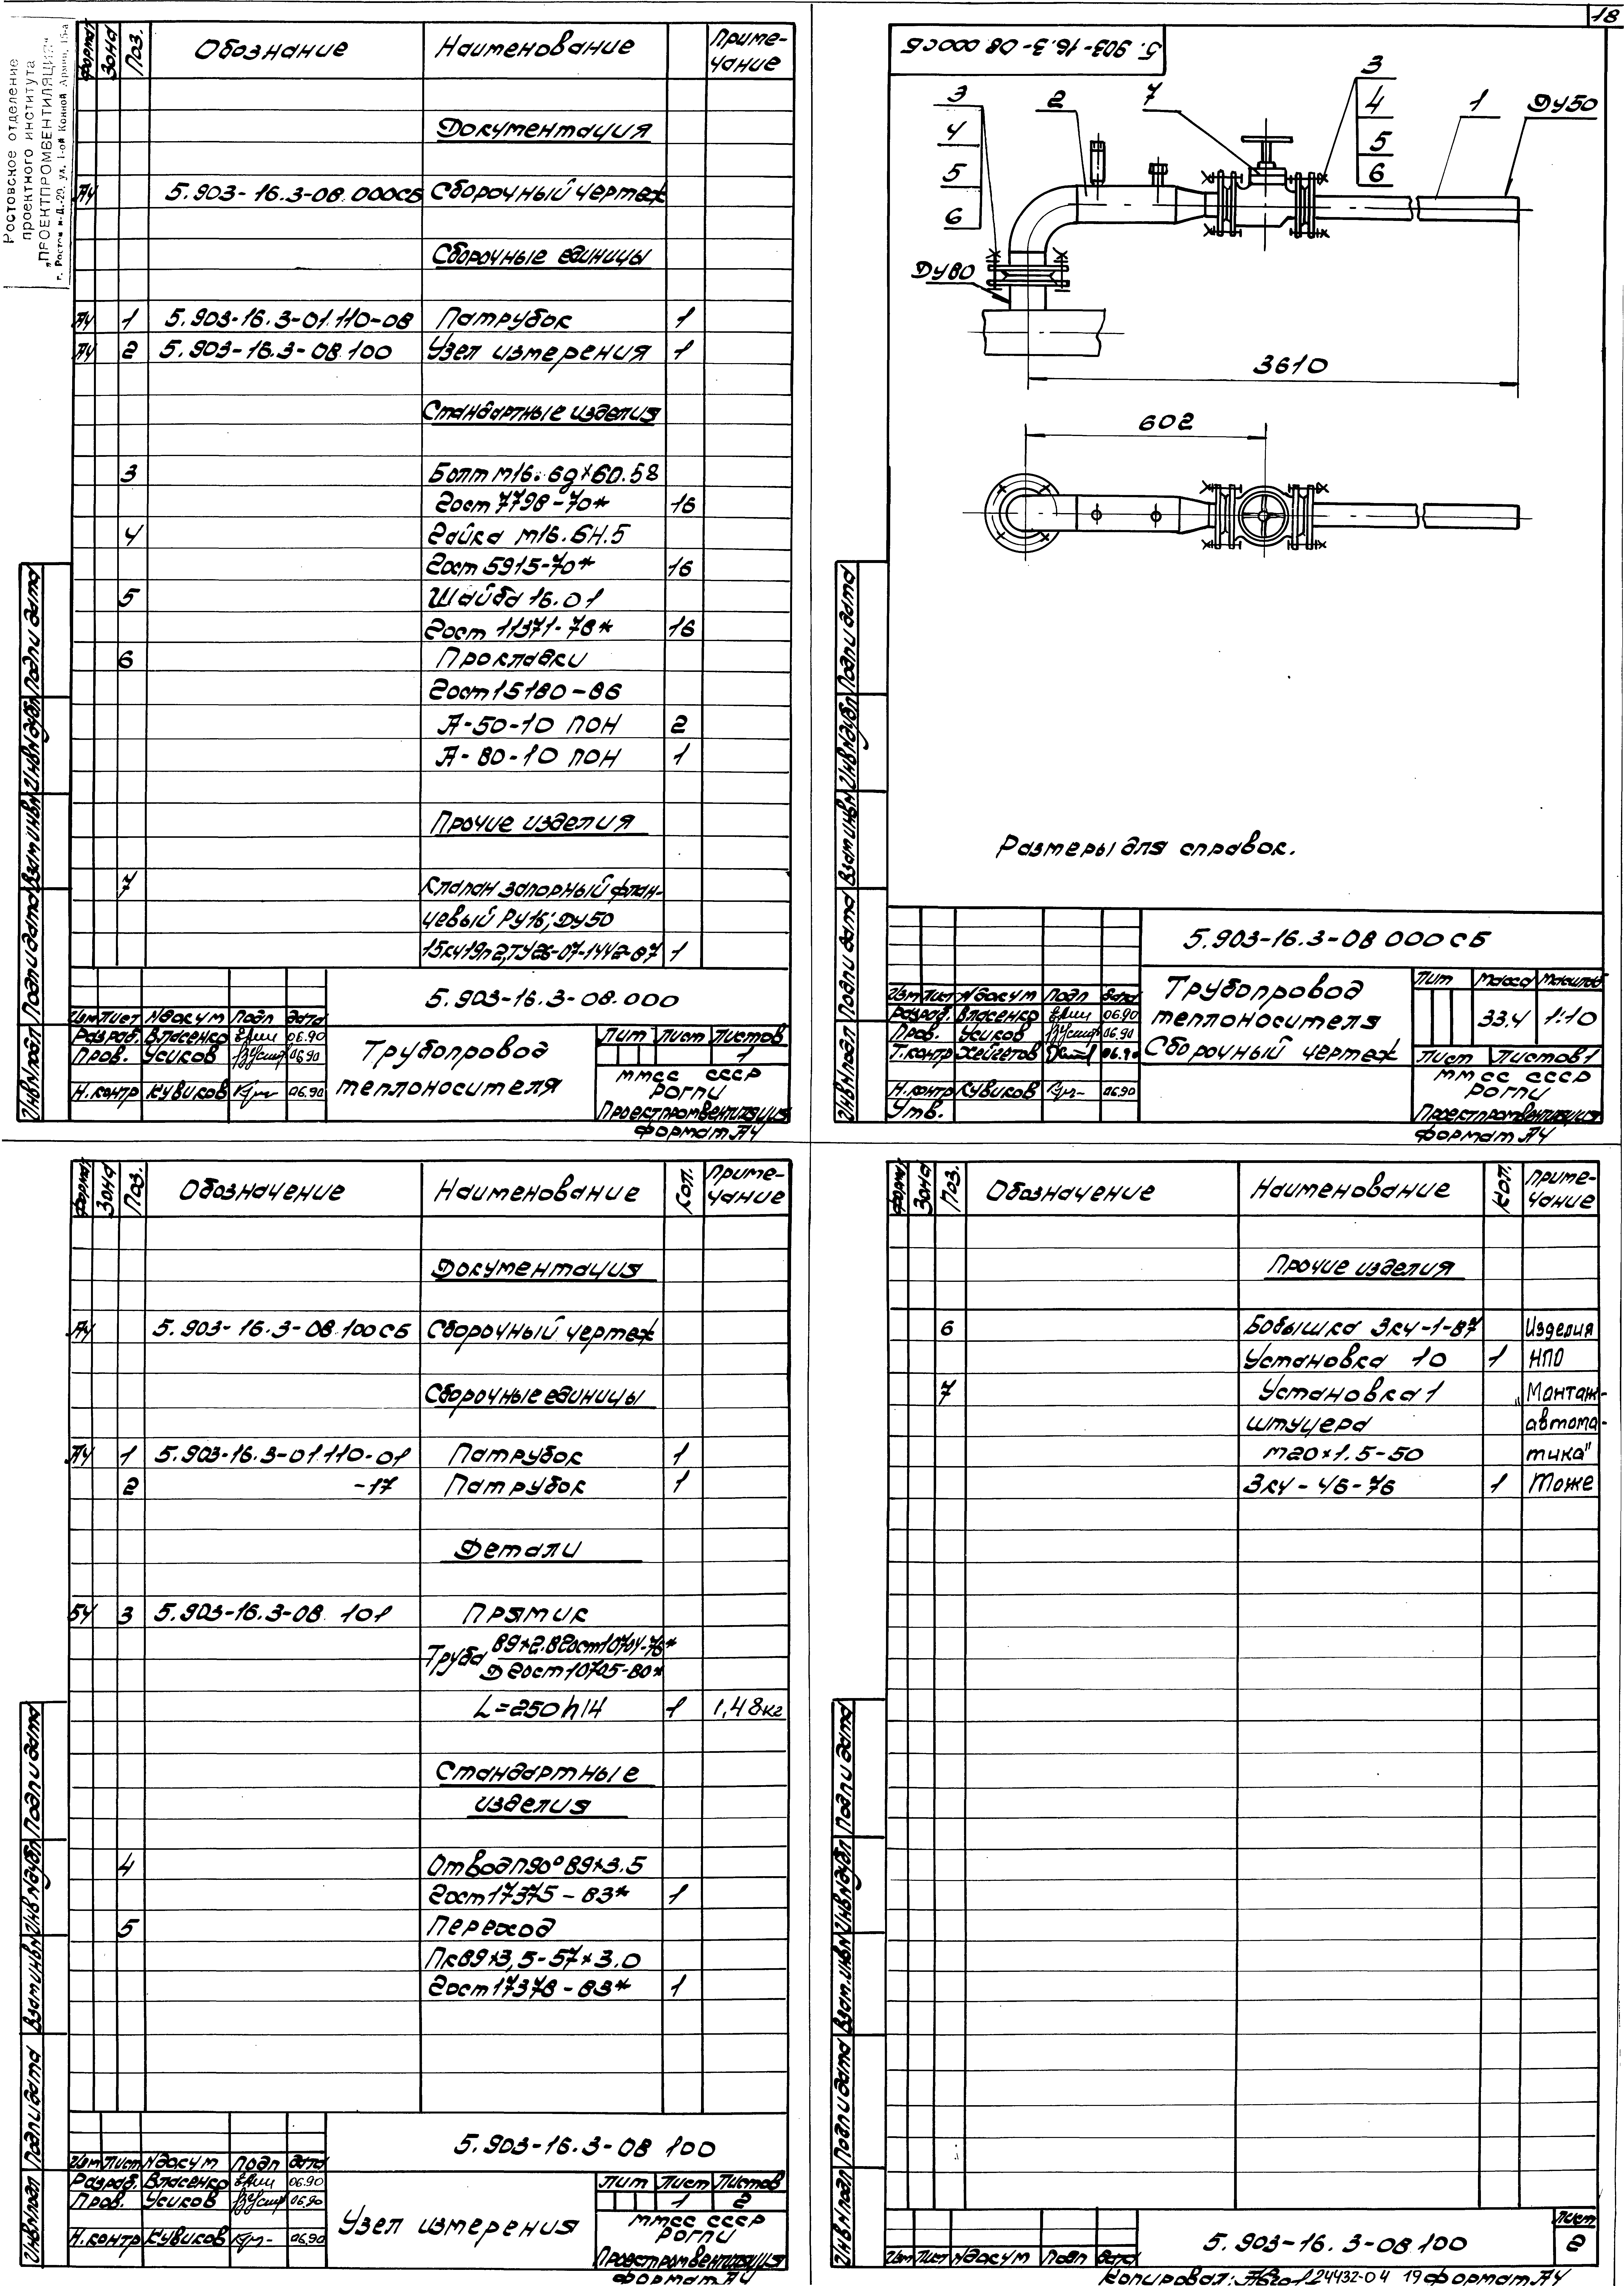 18
Ростовское отделение
проектного института
„ПРОЕКТПРОМВЕНТИЛЯЦИЯ"
Формат Зона Поз. Обозначание Наименование Приме-
чание
Документация
А4 5.903-16.3-08.000СБ Сборочный чертеж
Сборочные единицы
А4 1 5.903-16.3-01.110-08 Патрубок 1
А4 2 5.903-16.3-08.100 Узел измерения 1
Стандартные изделия
3 Болт М16.6g×60.58
Гост 7798-70* 16
4 Гайка М16.6Н.5
Гост 5915-70* 16
5 Шайба 16.01
Гост 11371-78* 16
6 Прокладки
Гост 15180-86
А-50-10 ПОН 2
А-80-10 ПОН 1
Прочие изделия
7 Клапан запорный флан-
цевый Ру16; Ду50
15кч19п2, ТУ26-07-1442-87 1
5.903-16.3-08.000
Изм Лист №докум Подп Дата
Разраб. Власенко 06.90
Пров. Усиков 06.90
Н.контр Кувиков 06.90
Трубопровод
теплоносителя
Лит Лист Листов
1
ММСС СССР
РОГПИ
Проектпромвентиляция
Формат А4
Инв№подл Подп и дата Взам инв№ Инв№дубл Подп и дата
5.903-16.3-08 000СБ
3
4
5
6
2
7
3
4
5
6
1
Ду50
Ду80
3610
602
Размеры для справок.
5.903-16.3-08 000СБ
Изм Лист №докум Подп Дата
Разраб. Власенко 06.90
Пров. Усиков 06.90
Т.контр Хейгетов 06.90
Н.контр Кувиков 06.90
Утв.
Трубопровод
теплоносителя
Сборочный чертеж
Лит Масса Масштаб
33.4 1:10
Лист Листов 1
ММСС СССР
РОГПИ
Проектпромвентиляция
Формат А4
Инв№подл Подп и дата Взам инв№ Инв№дубл Подп и дата
Формат Зона Поз. Обозначение Наименование Кол. Приме-
чание
Документация
А4 5.903-16.3-08.100СБ Сборочный чертеж
Сборочные единицы
А4 1 5.903-16.3-01.110-01 Патрубок 1
2 -17 Патрубок 1
Детали
БЧ 3 5.903-16.3-08.101 Прямик
Труба 89×2.8 Гост 10704-76*
Д Гост 10705-80*
L=250 h14 1 1,48кг
Стандартные
изделия
4 Отвод П90° 89×3.5
Гост 17375-83* 1
5 Переход
Пк89×3,5-57×3.0
Гост 17378-83* 1
5.903-16.3-08 100
Изм Лист №докум Подп Дата
Разраб. Власенко 06.90
Пров. Усиков 06.90
Н.контр Кувиков 06.90
Узел измерения
Лит Лист Листов
1 2
ММСС СССР
РОГПИ
Проектпромвентиляция
Формат А4
Инв№подл Подп и дата Взам инв№ Инв№дубл Подп и дата
Формат Зона Поз. Обозначение Наименование Кол. Приме-
чание
Прочие изделия
6 Бобышка ЗК4-1-87 Изделия
Установка 10 1 НПО
7 Установка 1 „Монтаж-
штуцера автома-
М20×1.5-50 тика"
ЗК4-46-76 1 Тоже
Изм Лист №докум Подп Дата
5.903-16.3-08.100
Лист
2
Инв№подл Подп и дата Взам.инв№ Инв№дубл Подп и дата
Копировал: 24432-04 19 Формат А4